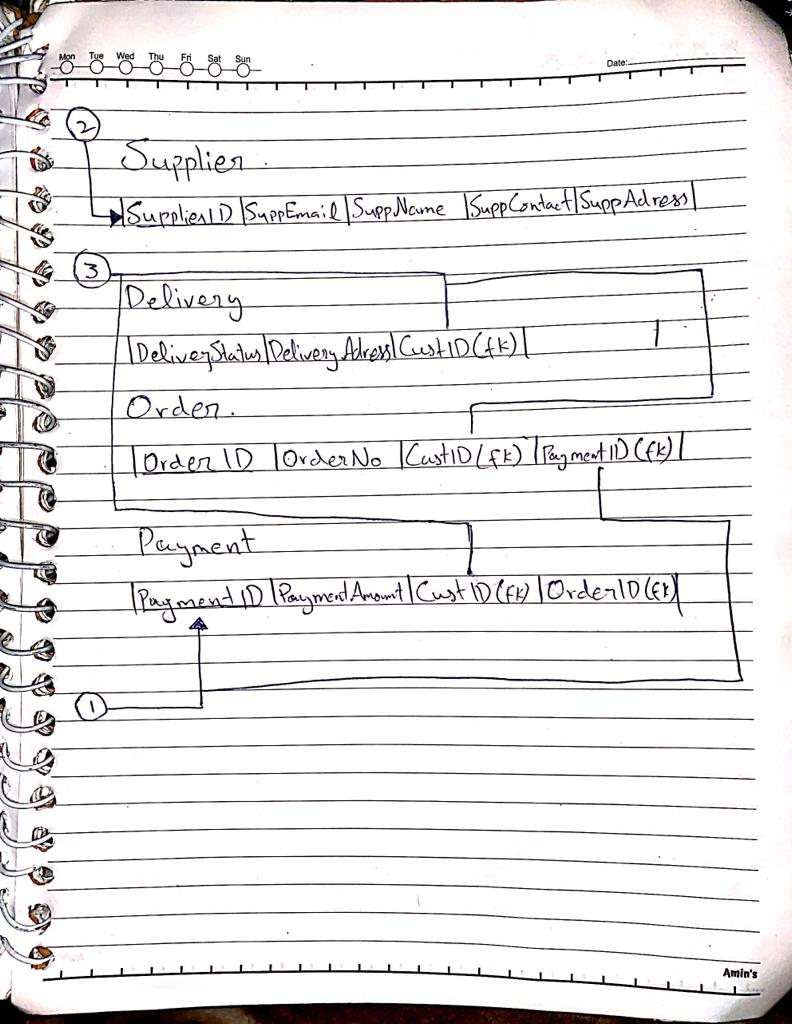 Mon Tue Wed Thu Fri Sat Sun Date:
2
Supplier.
|SupplierID|SuppEmail|SuppName|SuppContact|SuppAdress|
3
Delivery
|DeliveryStatus|DeliveryAdress|CustID(fk)|
Order.
|OrderID|OrderNo|CustID(fk)|PaymentID(fk)|
Payment
|PaymentID|PaymentAmount|CustID(fk)|OrderID(fk)|
1
Amin's